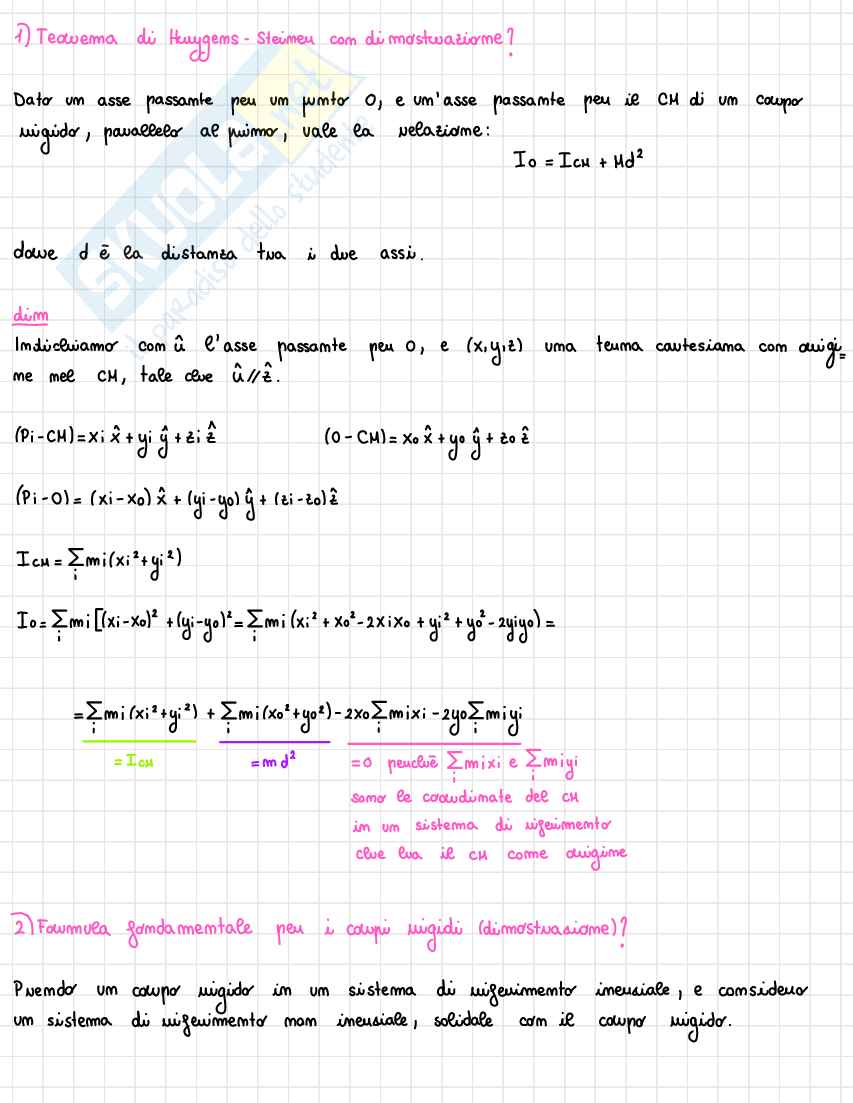 1) Teorema di Huygens-Steiner con dimostrazione?
Dato un asse passante per un punto O, e un'asse passante per il CM di un corpo
rigido, parallelo al primo, vale la relazione:
Io = ICM + Md²
dove d è la distanza tra i due assi.
dim
Indichiamo con û l'asse passante per O, e (x,y,z) una terna cartesiana con origi=
ne nel CM, tale che û // ẑ.
(Pi-CM)= xi x̂ + yi ŷ + zi ẑ (O-CM)= xo x̂ + yo ŷ + zo ẑ
(Pi-O)= (xi-xo) x̂ + (yi-yo) ŷ + (zi-zo) ẑ
ICM = Σi mi(xi²+yi²)
Io = Σi mi[(xi-xo)² + (yi-yo)² = Σi mi(xi² + xo² - 2xixo + yi² + yo² - 2yiyo) =
= Σi mi(xi²+yi²) + Σi mi(xo²+yo²) - 2xo Σi mixi - 2yo Σi miyi
= ICM = md² =0 perché Σi mixi e Σi miyi
sono le coordinate del CM
in un sistema di riferimento
che ha il CM come origine
2) Formula fondamentale per i corpi rigidi (dimostrazione)?
Prendo un corpo rigido in un sistema di riferimento inerziale, e considero
un sistema di riferimento non inerziale, solidale con il corpo rigido.
SKUOLA.net
il paradiso dello studente